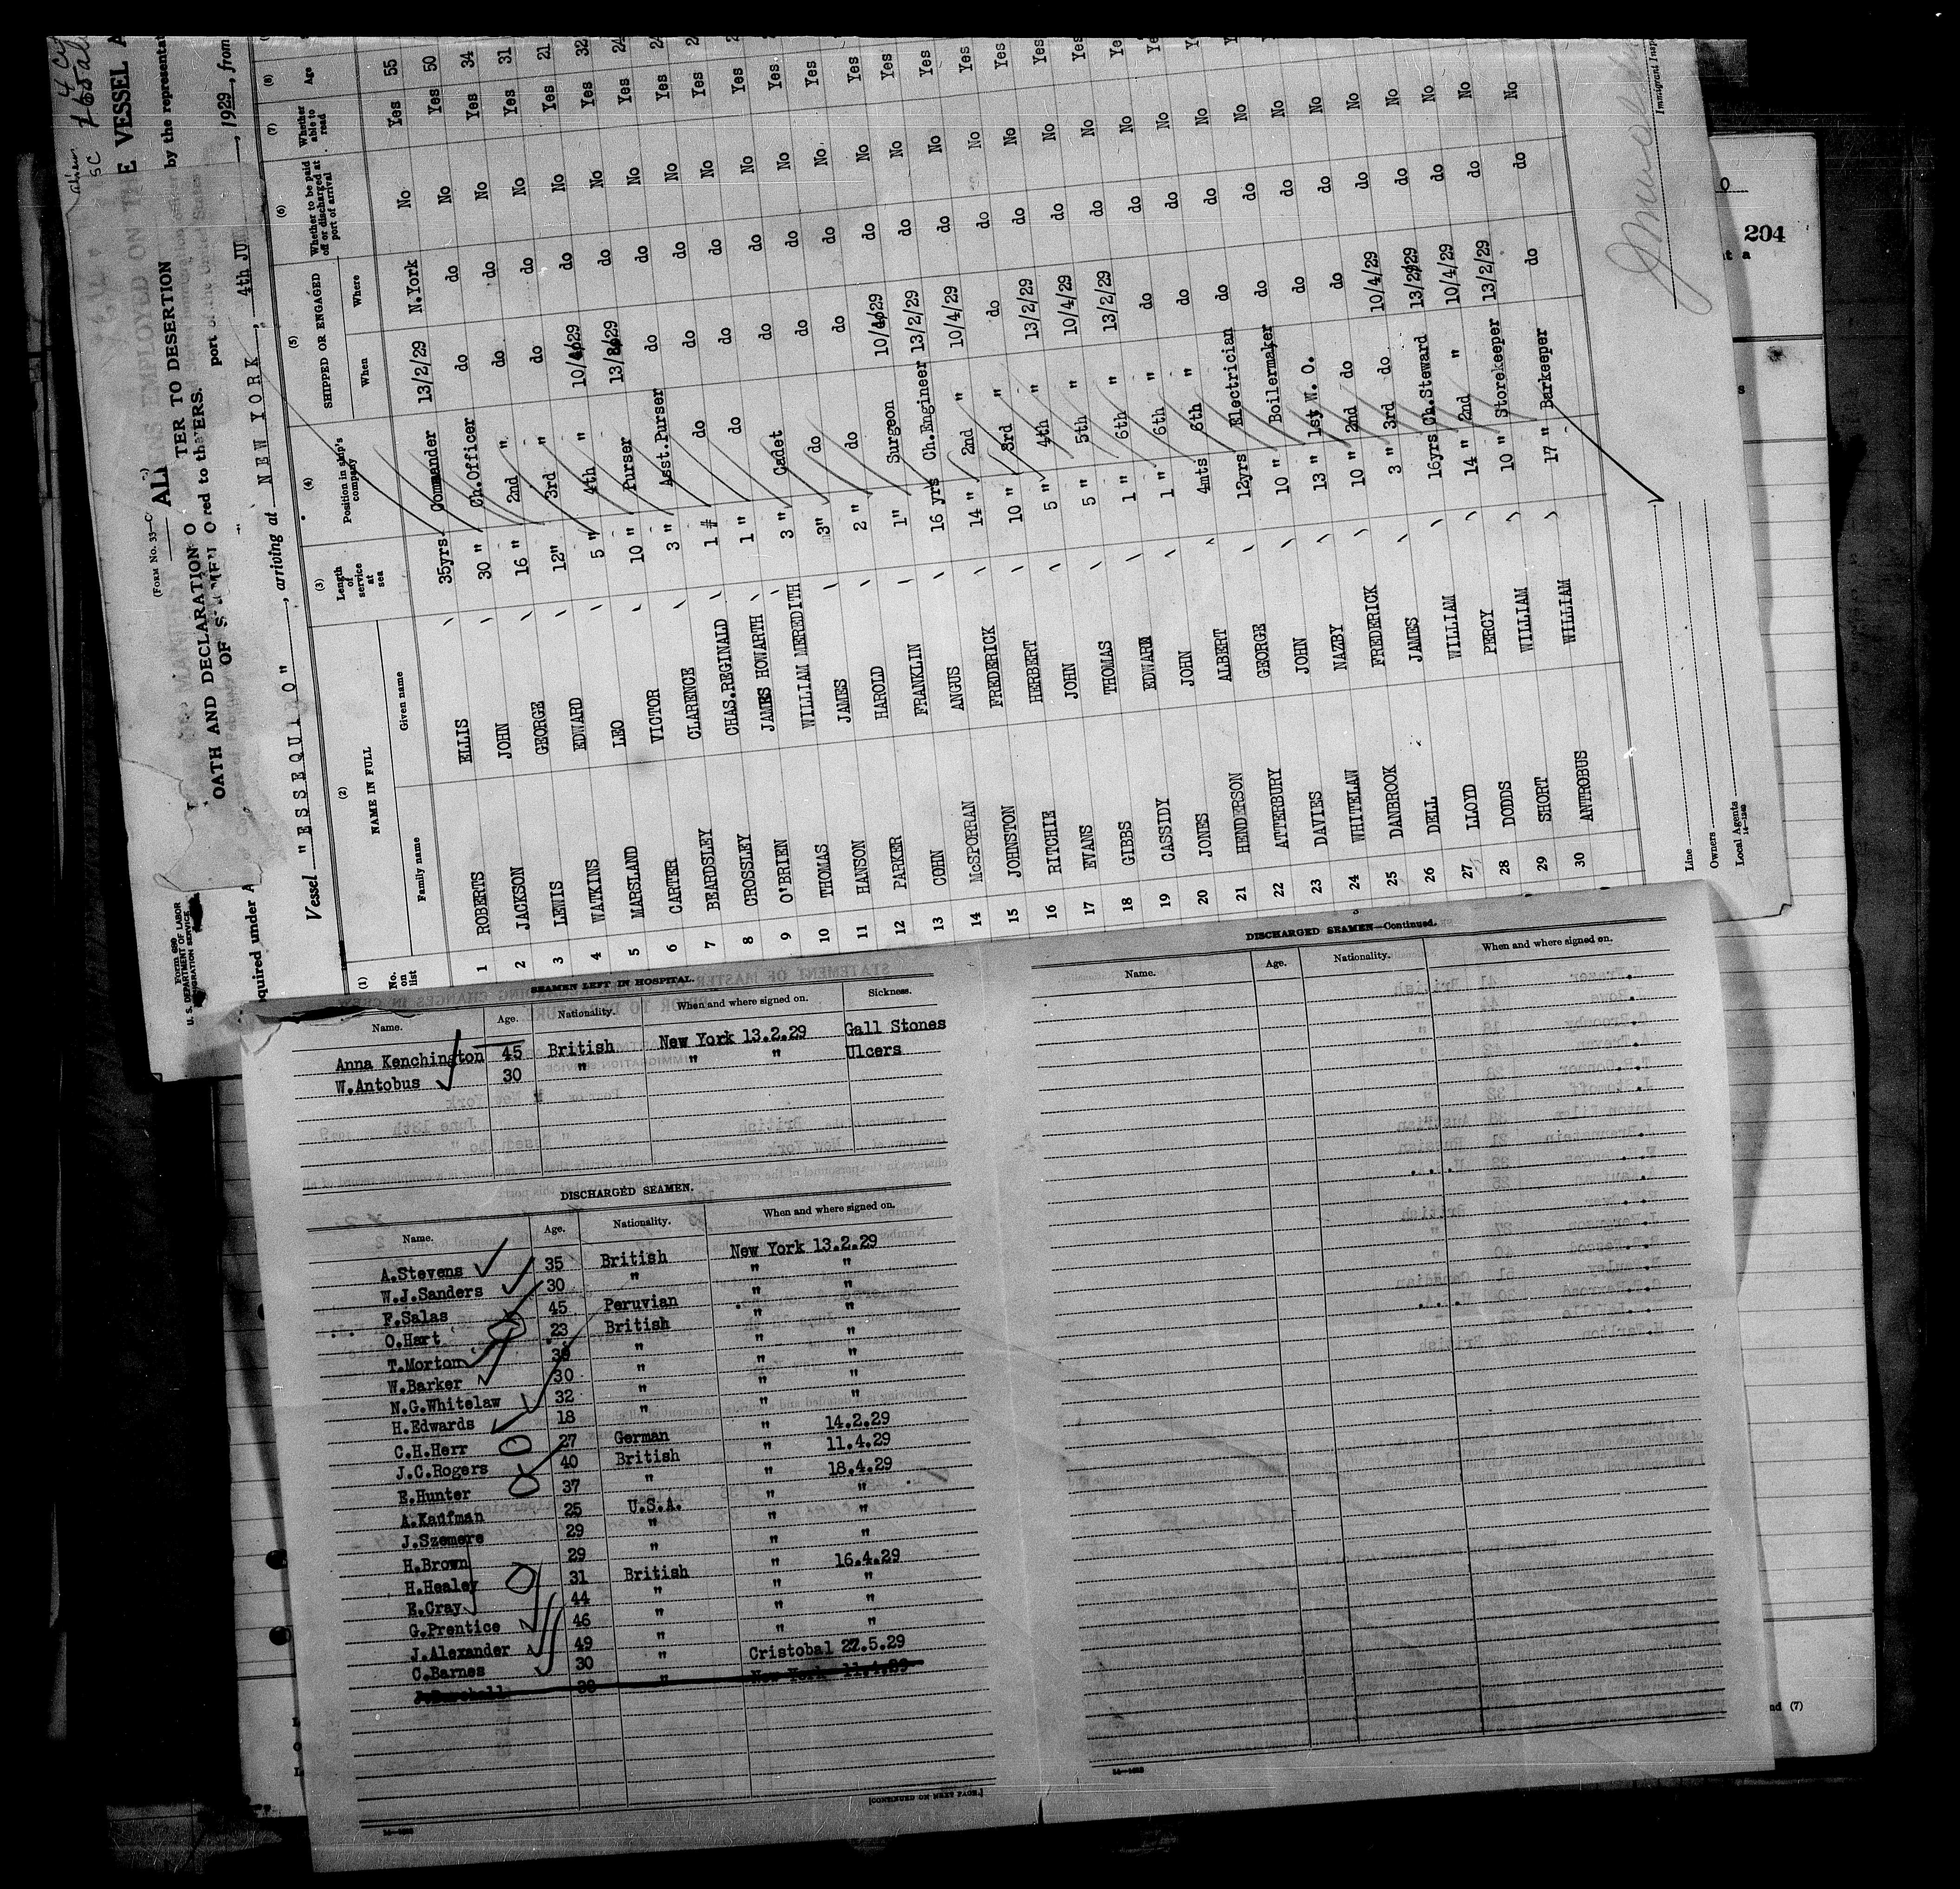 (FORM No. 33—C
ALI
OATH AND DECLARATION O
TER TO DESERTION
OF
ERS.
E VESSEL A
by the representat
Form 689
U. S. DEPARTMENT OF LABOR
IMMIGRATION SERVICE
equired under A
port of
Vessel "ESSEQUIBO", arriving at NEW YORK, 4th JU, 1929, from
(1) (2) (3) (4) (5) (6) (7) (8)
No. on list NAME IN FULL Length of service at sea Position in ship's company SHIPPED OR ENGAGED Whether to be paid off or discharged at port of arrival Whether able to read Age
Family name Given name When Where
1 ROBERTS ELLIS 35yrs. Commander 13/2/29 N.York No Yes 55
2 JACKSON JOHN 30 " Ch.Officer do do No Yes 50
3 LEWIS GEORGE 16 " 2nd " do do No Yes 34
4 WATKINS EDWARD 12" 3rd " do do No Yes 31
5 MARSLAND LEO 5 " 4th " 10/4/29 do No Yes 21
6 CARTER VICTOR 10 " Purser 13/2/29 do No Yes 32
7 BEARDSLEY CLARENCE 3 " Asst.Purser do do No Yes
8 CROSSLEY CHAS.REGINALD 1 # do do do No Yes
9 O'BRIEN JAMES HOWARTH 1 " do do do No Yes
10 THOMAS WILLIAM MEREDITH 3 " Cadet do do No Yes
11 HANSON JAMES 3" do do do No Yes
12 PARKER HAROLD 2 " do do do No Yes
13 COHN FRANKLIN 1" Surgeon 10/4/29 do No Yes
14 McSPORRAN ANGUS 16 yrs Ch.Engineer 13/2/29 do No Yes
15 JOHNSTON FREDERICK 14 " 2nd " 10/4/29 do No Yes
16 RITCHIE HERBERT 10 " 3rd " do do No Yes
17 EVANS JOHN 5 " 4th " 13/2/29 do No Yes
18 GIBBS THOMAS 5 " 5th " 10/4/29 do No Yes
19 CASSIDY EDWARD 1 " 6th " 13/2/29 do No
20 JONES JOHN 1 " 6th " do do No
21 HENDERSON ALBERT 4mts 6th " do do No
22 ATTERBURY GEORGE 12yrs Electrician do do No
23 DAVIES JOHN 10 " Boilermaker do do No
24 WHITELAW NAZBY 13 " 1st W. O. do do No
25 DANBROOK FREDERICK 10 " 2nd do do do No
26 DELL JAMES 3 " 3rd do 10/4/29 do No
27 LLOYD WILLIAM 16yrs Ch.Steward 13/2/29 do No
28 DODDS PERCY 14 " 2nd " 10/4/29 do No
29 SHORT WILLIAM 10 " Storekeeper 13/2/29 do No
30 ANTROBUS WILLIAM 17 " Barkeeper do do No
Line
Owners
Local Agents
Immigrant Insp
204
SEAMEN LEFT IN HOSPITAL.
Name. Age. Nationality. When and where signed on. Sickness.
Anna Kenchington 45 British New York 13.2.29 Gall Stones
W.Antobus 30 " " " Ulcers
DISCHARGED SEAMEN.
Name. Age. Nationality. When and where signed on.
A.Stevens 35 British New York 13.2.29
W.J.Sanders 30 " " "
F.Salas 45 Peruvian " "
O.Hart 23 British " "
T.Morton 30 " " "
W.Barker 30 " " "
N.G.Whitelaw 32 " " "
H.Edwards 18 " " "
C.H.Herr 27 German " 14.2.29
J.C.Rogers 40 British " 11.4.29
E.Hunter 37 " " 18.4.29
A.Kaufman 25 U.S.A. " "
J.Szemere 29 " " "
H.Brown 29 " " "
H.Healey 31 British " 16.4.29
E.Cray 44 " " "
G.Prentice 46 " " "
J.Alexander 49 " " "
C.Barnes 30 " Cristobal 22.5.29
New York 11.4.29
[CONTINUED ON NEXT PAGE.]
DISCHARGED SEAMEN—Continued.
Name. Age. Nationality. When and where signed on.
nd (7)